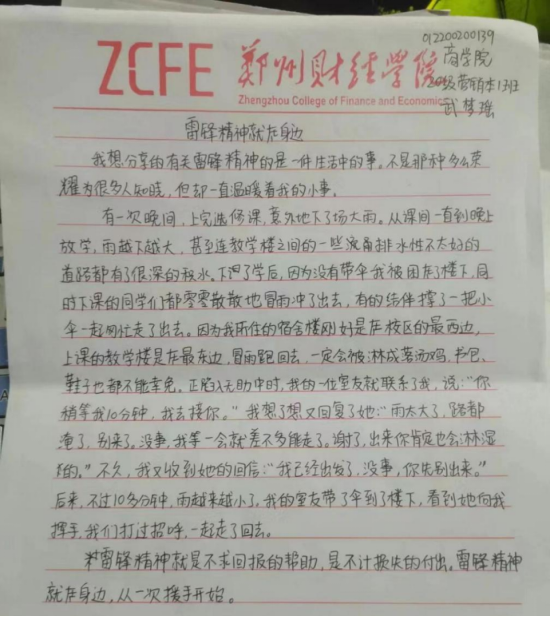 012200200139
商学院
ZCFE 郑州财经学院
20级营销本1班
Zhengzhou College of Finance and Economics
武梦瑶
雷锋精神就在身边
我想分享的有关雷锋精神的是一件生活中的事。不是那种多么荣
耀为很多人知晓，但却一直温暖着我的小事。
有一次晚间，上完选修课，意外地下了场大雨。从课间一直到晚上
放学，雨越下越大，甚至连教学楼之间的一些滚角排水性不太好的
道路都有了很深的积水。下课了学后，因为没有带伞我被困在了楼下，同
时下课的同学们都零零散散地冒雨冲了出去，有的结伴撑了一把小
伞一起匆忙走了出去。因为我所住的宿舍楼刚好是在校区的最西边，
上课的教学楼是在最东边，冒雨跑回去，一定会被淋成落汤鸡，书包、
鞋子也都不能幸免。正陷入无助中时，我的一位室友就联系了我，说：“你
稍等我10分钟，我去接你。”我想了想又回复了她：“雨太大了，路都
淹了，别来了。没事，我等一会就差不多能走了。谢了，出来你肯定也会淋湿
的。”不久，我又收到她的回信：“我已经出发了，没事，你先别出来。”
后来，不过10多分钟，雨越来越小了。我的室友带了伞到了楼下，看到她向我
挥手，我们打过招呼，一起走了回去。
雷锋精神就是不求回报的帮助，是不计损失的付出。雷锋精神
就在身边，从一次援手开始。